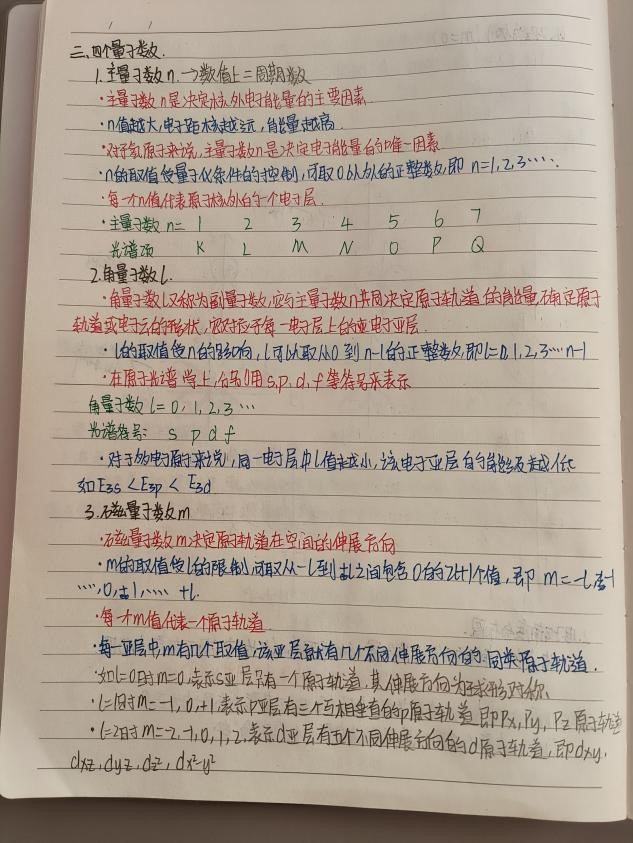 二、四个量子数.
1.主量子数n.→数值上=周期数
·主量子数n是决定核外电子能量的主要因素.
·n值越大,电子距核越远,能量越高.
·对于氢原子来说,主量子数n是决定电子能量的唯一因素
·n的取值受量子化条件的控制,可取0以外的正整数,即 n=1,2,3·····.
·每一个n值代表原子核外的一个电子层.
·主量子数n= 1 2 3 4 5 6 7
光谱项 K L M N O P Q
2.角量子数l.
·角量子数l又称为副量子数,它与主量子数n共同决定原子轨道的能量,确定原子
轨道或电子云的形状,它对应于每一电子层上的电子亚层.
·l的取值受n的影响,l可以取从0到n-1的正整数,即l=0,1,2,3···n-1
·在原子光谱学上,分别用s,p,d,f等符号来表示
角量子数l=0,1,2,3···
光谱符号: s p d f
·对于多电子原子来说,同一电子层中l值越小,该电子亚层的能级越低
如E3s<E3p<E3d
3.磁量子数m
·磁量子数m决定原子轨道在空间的伸展方向
·m的取值受l的限制,可取从-l到+l之间包含0的2l+1个值,即 m=-l,
····,0,+1,···· +l.
·每一个m值代表一个原子轨道
·每一亚层中,m有几个取值,该亚层就有几个不同伸展方向的同类原子轨道.
·如l=0时m=0,表示s亚层只有一个原子轨道,其伸展方向为球形对称.
·l=1时m=-1,0,+1,表示p亚层有三个互相垂直的p原子轨道,即Px,Py,Pz原子轨道
·l=2时m=-2,-1,0,1,2,表示d亚层有五个不同伸展方向的d原子轨道,即dxy,
dxz,dyz,dz²,dx²-y²